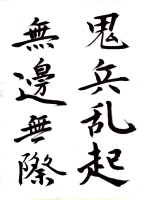 鬼兵乱起
無邊無際